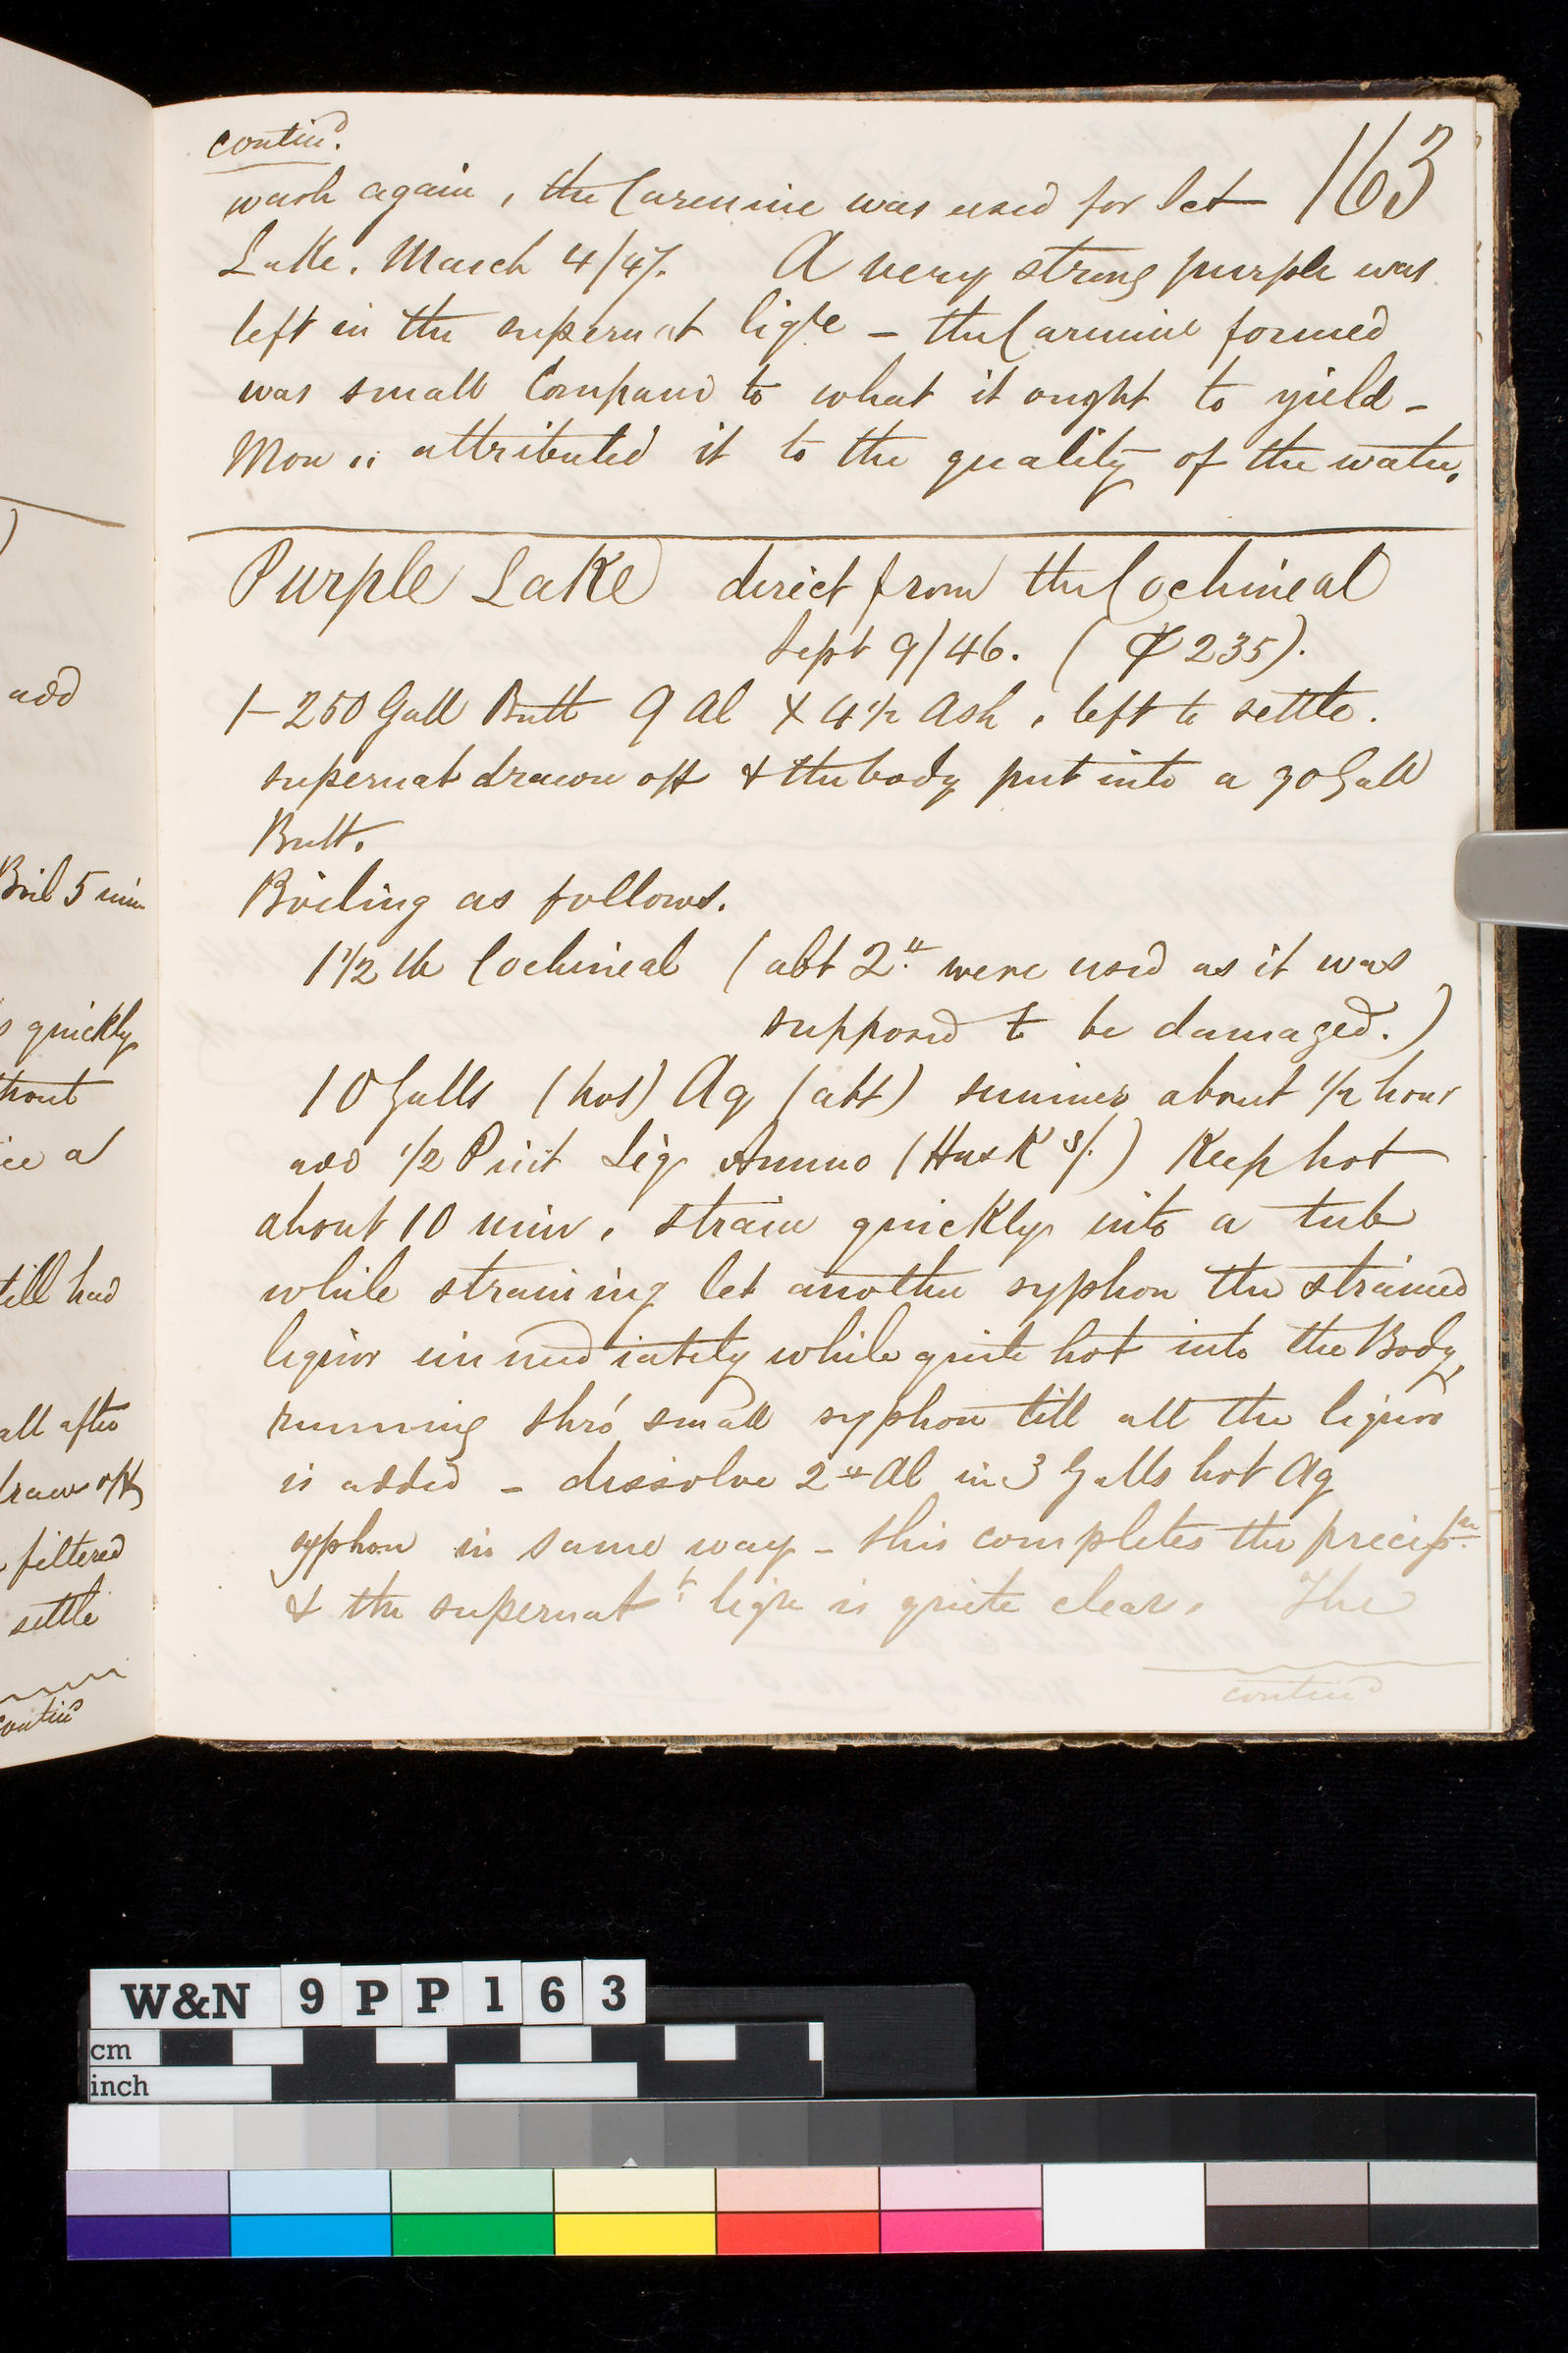 add
Boil 5 min
quickly
ice a
till had
all after
draw off
filtered
settle
contind
contind.
163
wash again, the Carmine was used for Sct
Lake. March 4/47. A very strong purple was
left in the supernat liqre – the Carmine formed
was small Compard to what it ought to yield –
attributed it to the quality of the water.
Purple Lake direct from the Cochineal
Sept 9/46. ( 235).
1–250 Gall Butt 9 Al X 4 1/2 Ash, left to settle.
supernat drawn off & the body put into a 90 Gall
Butt.
Boiling as follows.
1 1/2 lb Cochineal (abt 2 lb were used as it was
supposed to be damaged.)
10 Galls (hot) Aq (abt) simmer about 1/2 hour
add 1/2 Pint Liq Ammo (Husk's/.) Keep hot
about 10 min, strain quickly into a tub
while straining let another syphon the strained
liquor immediately while quite hot into the Body,
running thro' small syphon till all the liquor
is added – dissolve 2 lb Al in 3 Galls hot Aq
syphon in same way – this completes the precipn.
& the supernatt liqr is quite clear. The
contind
W&N 9PP163
cm
inch